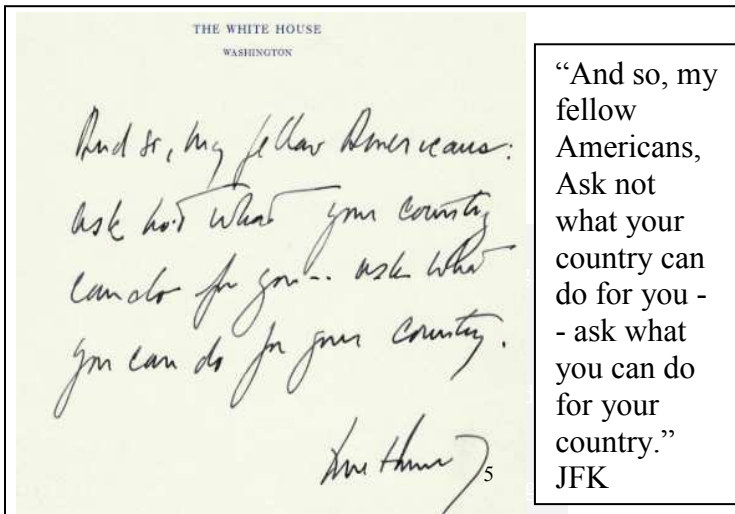 THE WHITE HOUSE
WASHINGTON
And so, my fellow Americans:
ask not what your country
can do for you -- ask what
you can do for your country.
5
“And so, my
fellow
Americans,
Ask not
what your
country can
do for you -
- ask what
you can do
for your
country.”
JFK